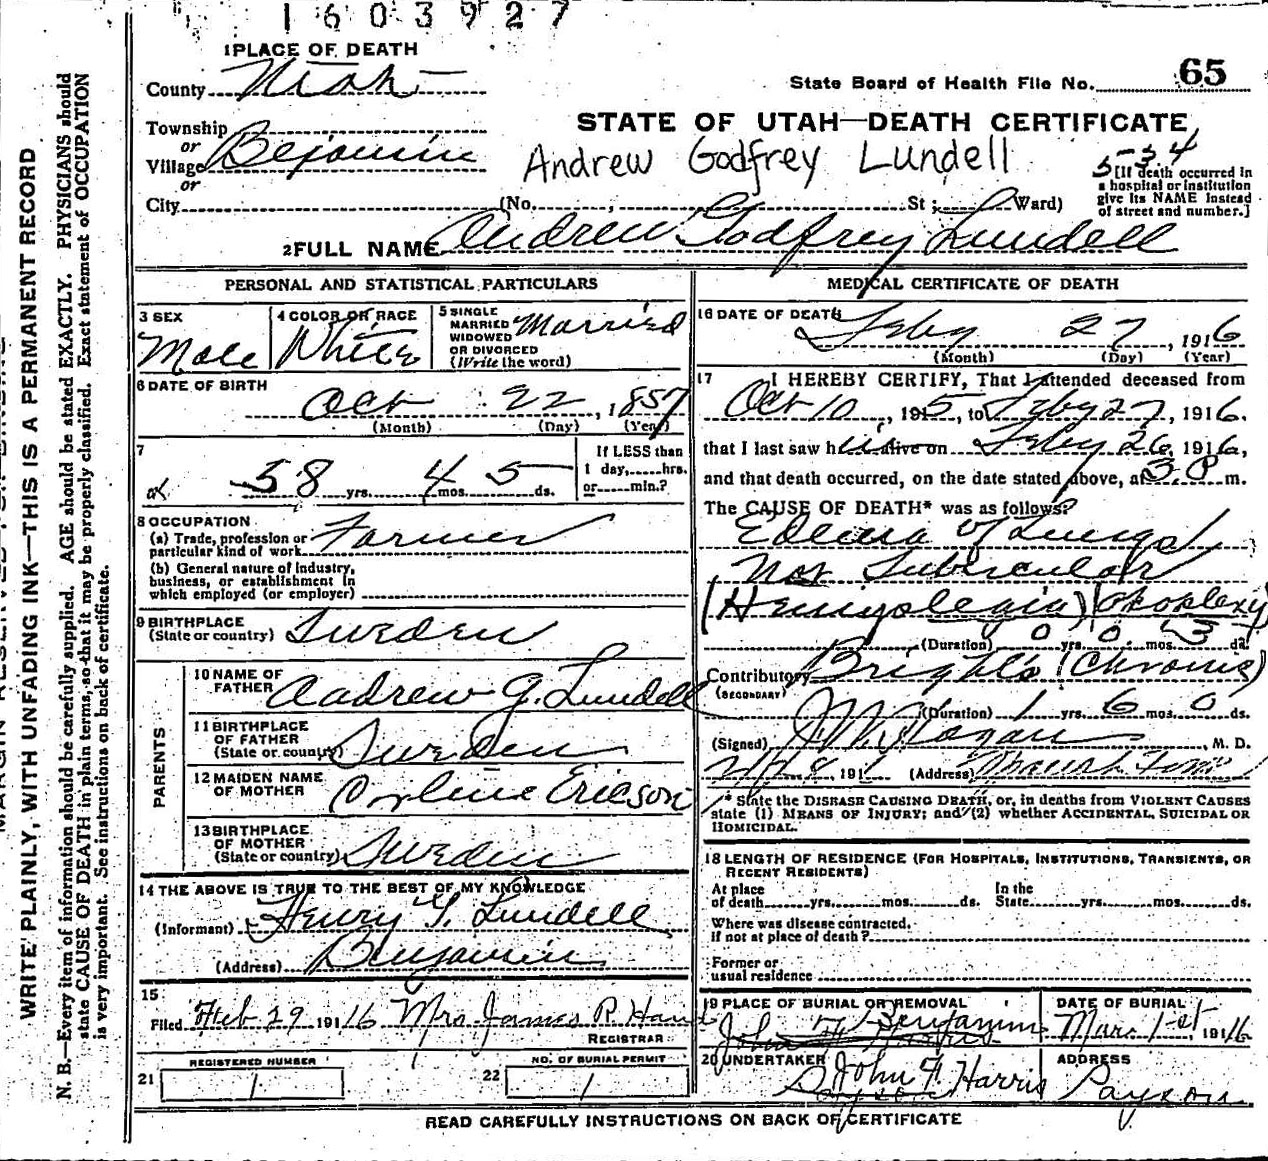 1603927
1 PLACE OF DEATH
County Utah
State Board of Health File No. 65
Township
or
Village Bejamin
or
City
STATE OF UTAH—DEATH CERTIFICATE
Andrew Godfrey Lundell
5-34
(No. , St ; Ward)
[If death occurred in
a hospital or institution
give its NAME instead
of street and number.]
2 FULL NAME Andrew Godfrey Lundell
PERSONAL AND STATISTICAL PARTICULARS
3 SEX
Male
4 COLOR OR RACE
White
5 SINGLE
MARRIED
WIDOWED
OR DIVORCED
(Write the word)
Married
6 DATE OF BIRTH
Oct 22, 1857
(Month) (Day) (Year)
7
58 yrs. 4 mos. 5 ds.
If LESS than
1 day, hrs.
or min.?
8 OCCUPATION
(a) Trade, profession or
particular kind of work Farmer
(b) General nature of industry,
business, or establishment in
which employed (or employer)
9 BIRTHPLACE
(State or country) Sweden
PARENTS
10 NAME OF
FATHER Andrew G. Lundell
11 BIRTHPLACE
OF FATHER
(State or country) Sweden
12 MAIDEN NAME
OF MOTHER Ericson
13 BIRTHPLACE
OF MOTHER
(State or country) Sweden
14 THE ABOVE IS TRUE TO THE BEST OF MY KNOWLEDGE
(Informant) Henry G. Lundell
(Address) Benjamin
15
Filed Feb 29 1916 Mrs James R Han
REGISTRAR
REGISTERED NUMBER
21 1
NO. OF BURIAL PERMIT
22 1
MEDICAL CERTIFICATE OF DEATH
16 DATE OF DEATH
Feby 27, 1916
(Month) (Day) (Year)
17 I HEREBY CERTIFY, That I attended deceased from
Oct 10, 1915, to Feby 27, 1916.
that I last saw him alive on Feby 26 1916,
and that death occurred, on the date stated above, at 3 P m.
The CAUSE OF DEATH* was as follows:
Edema of Lungs
Not Tubercular
(Hemiplegia) (Apoplexy)
(Duration) 0 yrs. 0 mos. 3 ds.
Contributory Bright's (Chronic)
(SECONDARY)
(Duration) 1 yrs. 6 mos. 0 ds.
(Signed) J.W. Hagan, M. D.
2/28, 191 (Address) Spanish Fork
* State the DISEASE CAUSING DEATH, or, in deaths from VIOLENT CAUSES
state (1) MEANS OF INJURY; and (2) whether ACCIDENTAL, SUICIDAL OR
HOMICIDAL.
18 LENGTH OF RESIDENCE (FOR HOSPITALS, INSTITUTIONS, TRANSIENTS, OR
RECENT RESIDENTS)
At place
of death yrs. mos. ds.
In the
State yrs. mos. ds.
Where was disease contracted.
If not at place of death?
Former or
usual residence
19 PLACE OF BURIAL OR REMOVAL
Benjamin
John F Harris
DATE OF BURIAL
Mar. 1st 1916
20 UNDERTAKER
John F Harris
Payson
ADDRESS
Payson
READ CAREFULLY INSTRUCTIONS ON BACK OF CERTIFICATE
WRITE PLAINLY, WITH UNFADING INK—THIS IS A PERMANENT RECORD
N. B.—Every item of information should be carefully supplied. AGE should be stated EXACTLY. PHYSICIANS should
state CAUSE OF DEATH in plain terms, so that it may be properly classified. Exact statement of OCCUPATION
is very important. See instructions on back of certificate.